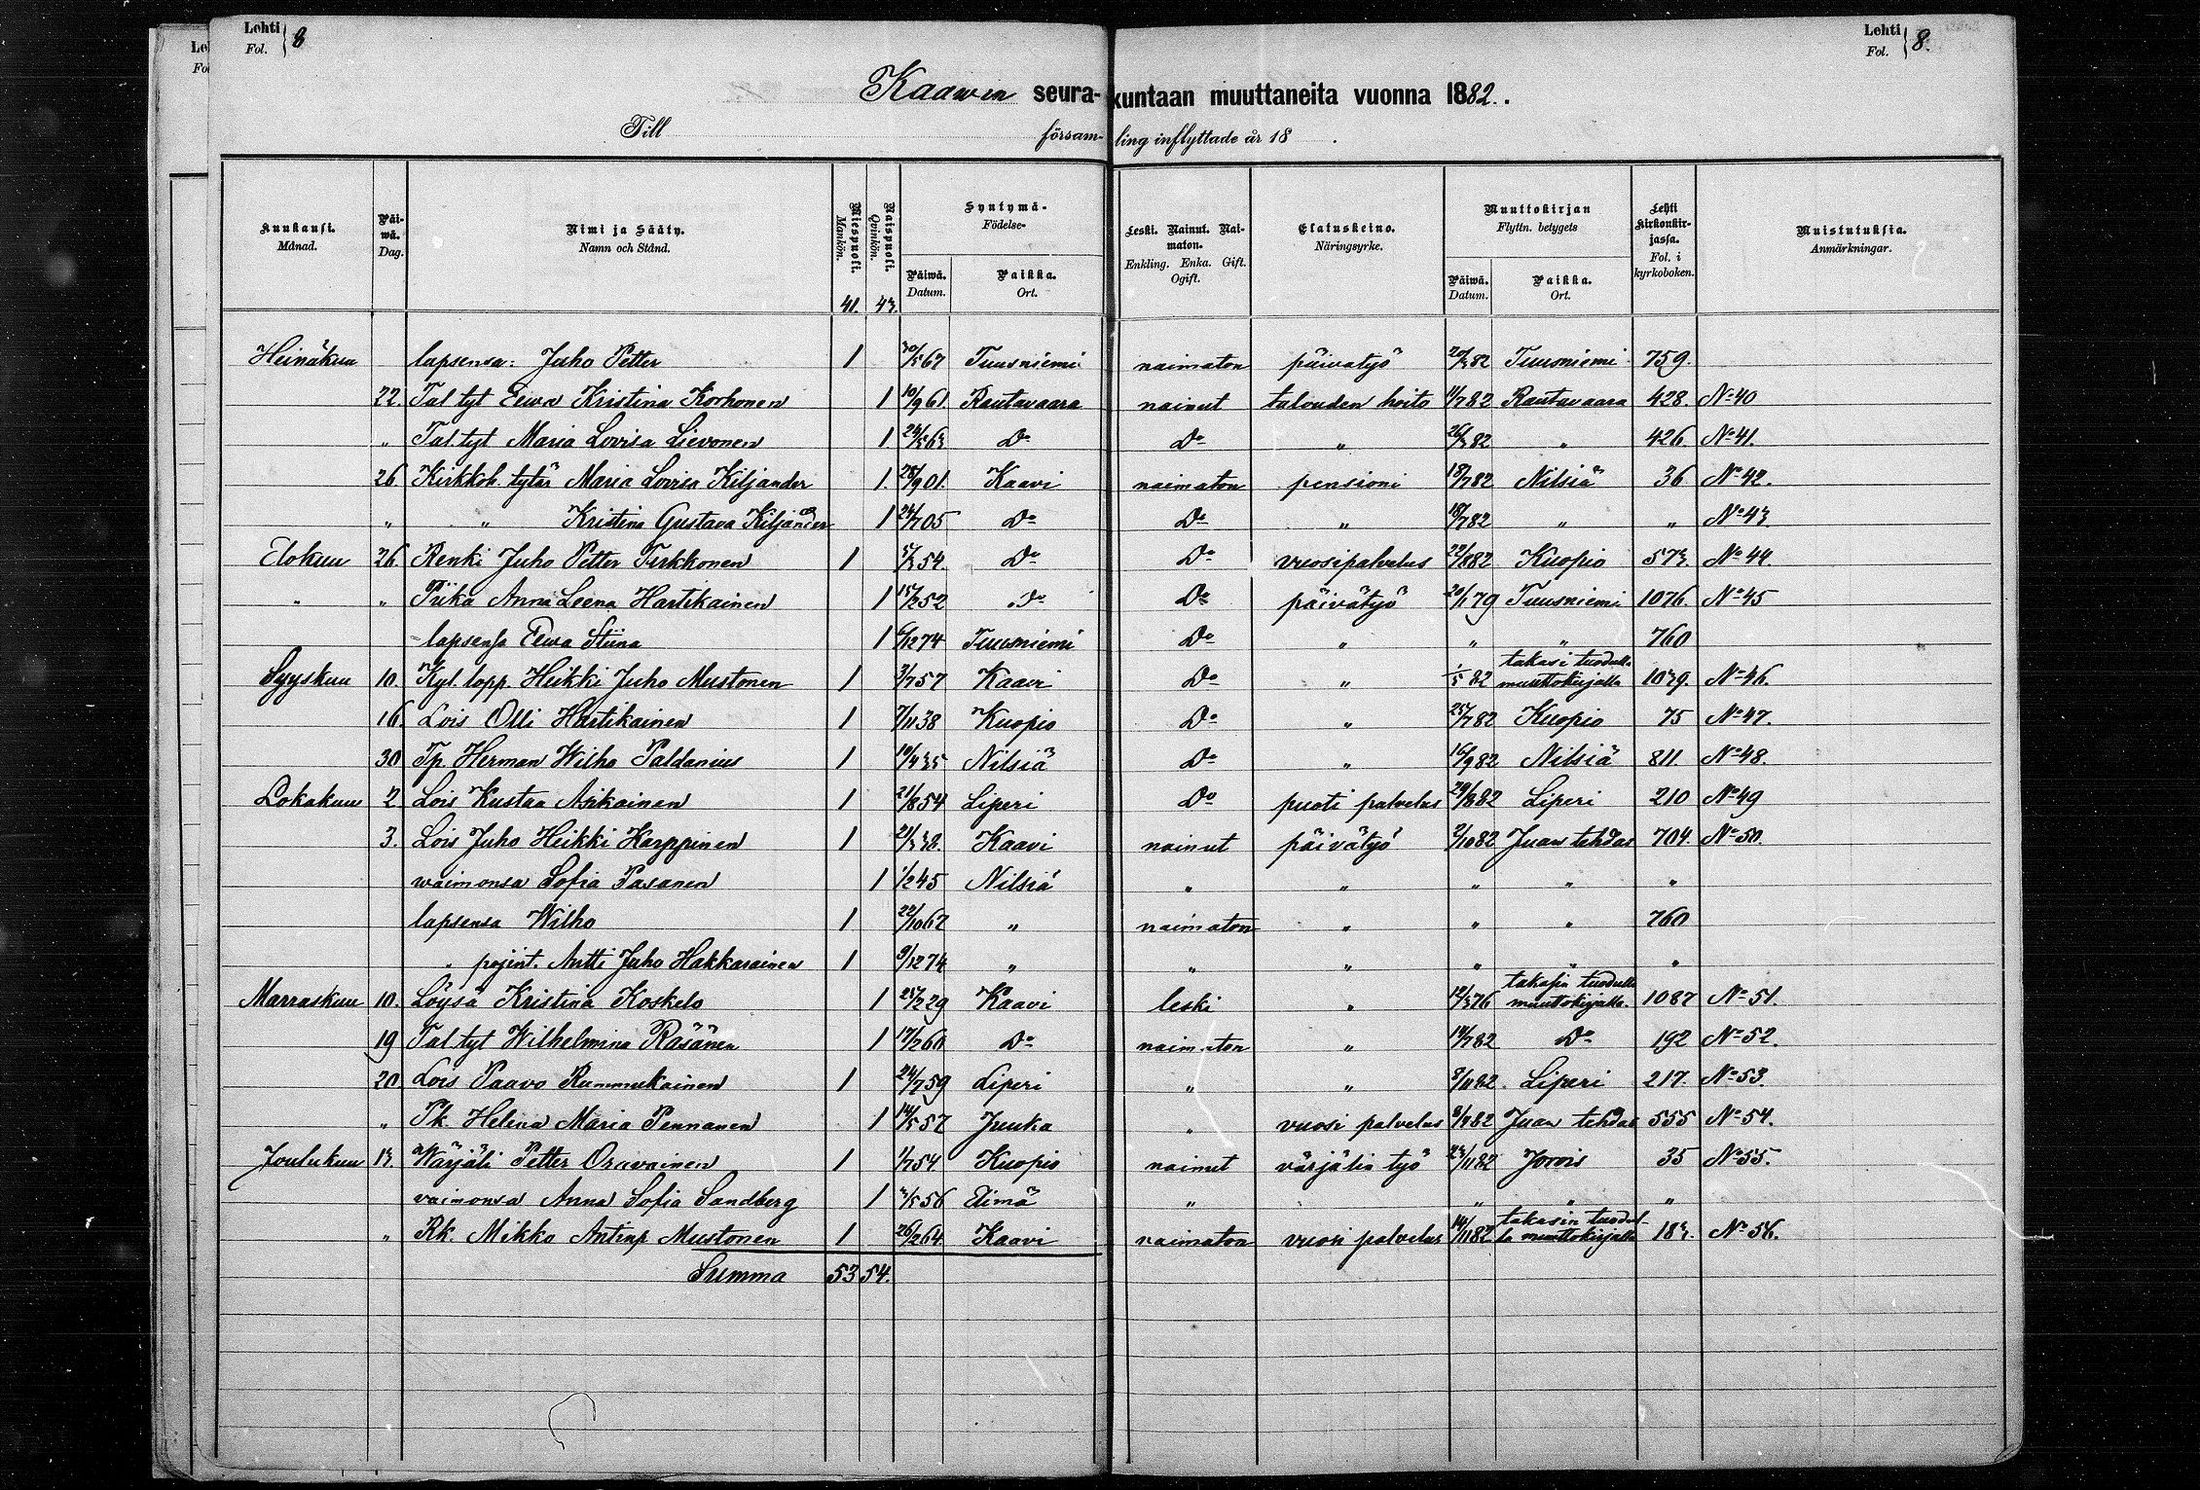 Lehti Fol. 8
Lehti Fol. 8.
Kaawin seurakuntaan muuttaneita vuonna 1882.
Till församling inflyttade år 18 .
Kuukausi. Månad. Päiwä. Dag. Nimi ja Sääty. Namn och Stånd. Miespuoli. Mankön. Naispuoli. Qvinkön. Syntymä- Födelse- Päiwä. Datum. Paikka. Ort. Leski. Nainut. Naimaton. Enkling. Enka. Gift. Ogift. Elatuskeino. Näringsyrke. Muuttokirjan Flyttn. betygets Päiwä. Datum. Paikka. Ort. Lehti Kirkonkirjassa. Fol. i kyrkoboken. Muistutuksia. Anmärkningar.
41. 43.
Heinäkuu lapsensa: Juho Petter 1 30/5 67 Tuusniemi naimaton päivätyö 20/3 82 Tuusniemi 759.
22. Tal. tyt Eewa Kristina Korhonen 1 10/9 61. Rautavaara nainut talouden hoito 11/7 82 Rautavaara 428. No 40
" Tal. tyt Maria Lovisa Lievonen 1 24/5 63 Do Do " 26/3 82 " 426. No 41.
26. Kirkkoh. tytär Maria Lovisa Kiljander 1. 28/9 01. Kaavi naimaton pensioni 18/7 82 Nilsiä 36 No 42.
" " Kristina Gustava Kiljander 1 24/7 05 Do Do " 18/7 82 " " No 43.
Elokuu 26. Renki Juho Petter Tirkkonen 1 5/3 54. Do Do vuosipalvelus 22/8 82 Kuopio 573. No 44.
" " Piika Anna Leena Hartikainen 1 15/2 52 Do Do päivätyö 20/1 79 Tuusniemi 1076. No 45
lapsensa Eewa Stiina 1 6/12 74 Tuusniemi Do " " " 760
Syyskuu 10. Kyl. lopp. Heikki Juho Mustonen 1 3/7 57 Kaavi Do " 1/5 82 takasi tuodulla muuttokirjalla 1039. No 46.
16. Lois Olli Hartikainen 1 7/11 38 Kuopio Do " 25/7 82 Kuopio 75 No 47.
30 Tp. Herman Wilho Paldanius 1 10/4 35 Nilsiä Do " 16/9 82 Nilsiä 811 No 48.
Lokakuu 2 Lois Kustaa Asikainen 1 21/8 54 Liperi Do puoti palvelus 29/8 82 Liperi 210 No 49
3. Lois Juho Heikki Karppinen 1 21/3 38. Kaavi nainut päivätyö 2/10 82 Juan tehdas 704. No 50.
waimonsa Sofia Pasanen 1 1/2 45 Nilsiä " " " " "
lapsensa Wilho 1 22/10 67 " naimaton " " " 760
" pojint. Antti Juho Hakkarainen 1 9/12 74 " " " " " "
Marraskuu 10. Löysä Kristina Koskelo 1 25/2 29 Kaavi leski " 12/3 76 takasin tuodulla muuttokirjalla. 1087 No 51.
19 Tal. tyt Wilhelmina Räsänen 1 17/2 60 Do naimaton " 14/7 82 Do 192 No 52.
20. Lois Paavo Rummukainen 1 24/7 59 Liperi " " 8/11 82. Liperi 217. No 53.
" Pk. Helena Maria Pennanen 1 14/5 57 Juuka " vuosi palvelus 8/9 82 Juan tehdas 555 No 54.
Joulukuu 13. Wärjäli Petter Oravainen 1 1/7 54 Kuopio nainut värjälin työ 23/11 82 Jorois 35 No 55.
vaimonsa Anna Sofia Sandberg 1 3/5 56 Elimä " " " " "
" Rk. Mikko Antinp. Mustonen 1 26/2 64. Kaavi naimaton vuosi palvelus 14/11 82 takasin tuodulla muuttokirjalla 183. No 56.
Summa 53 54.